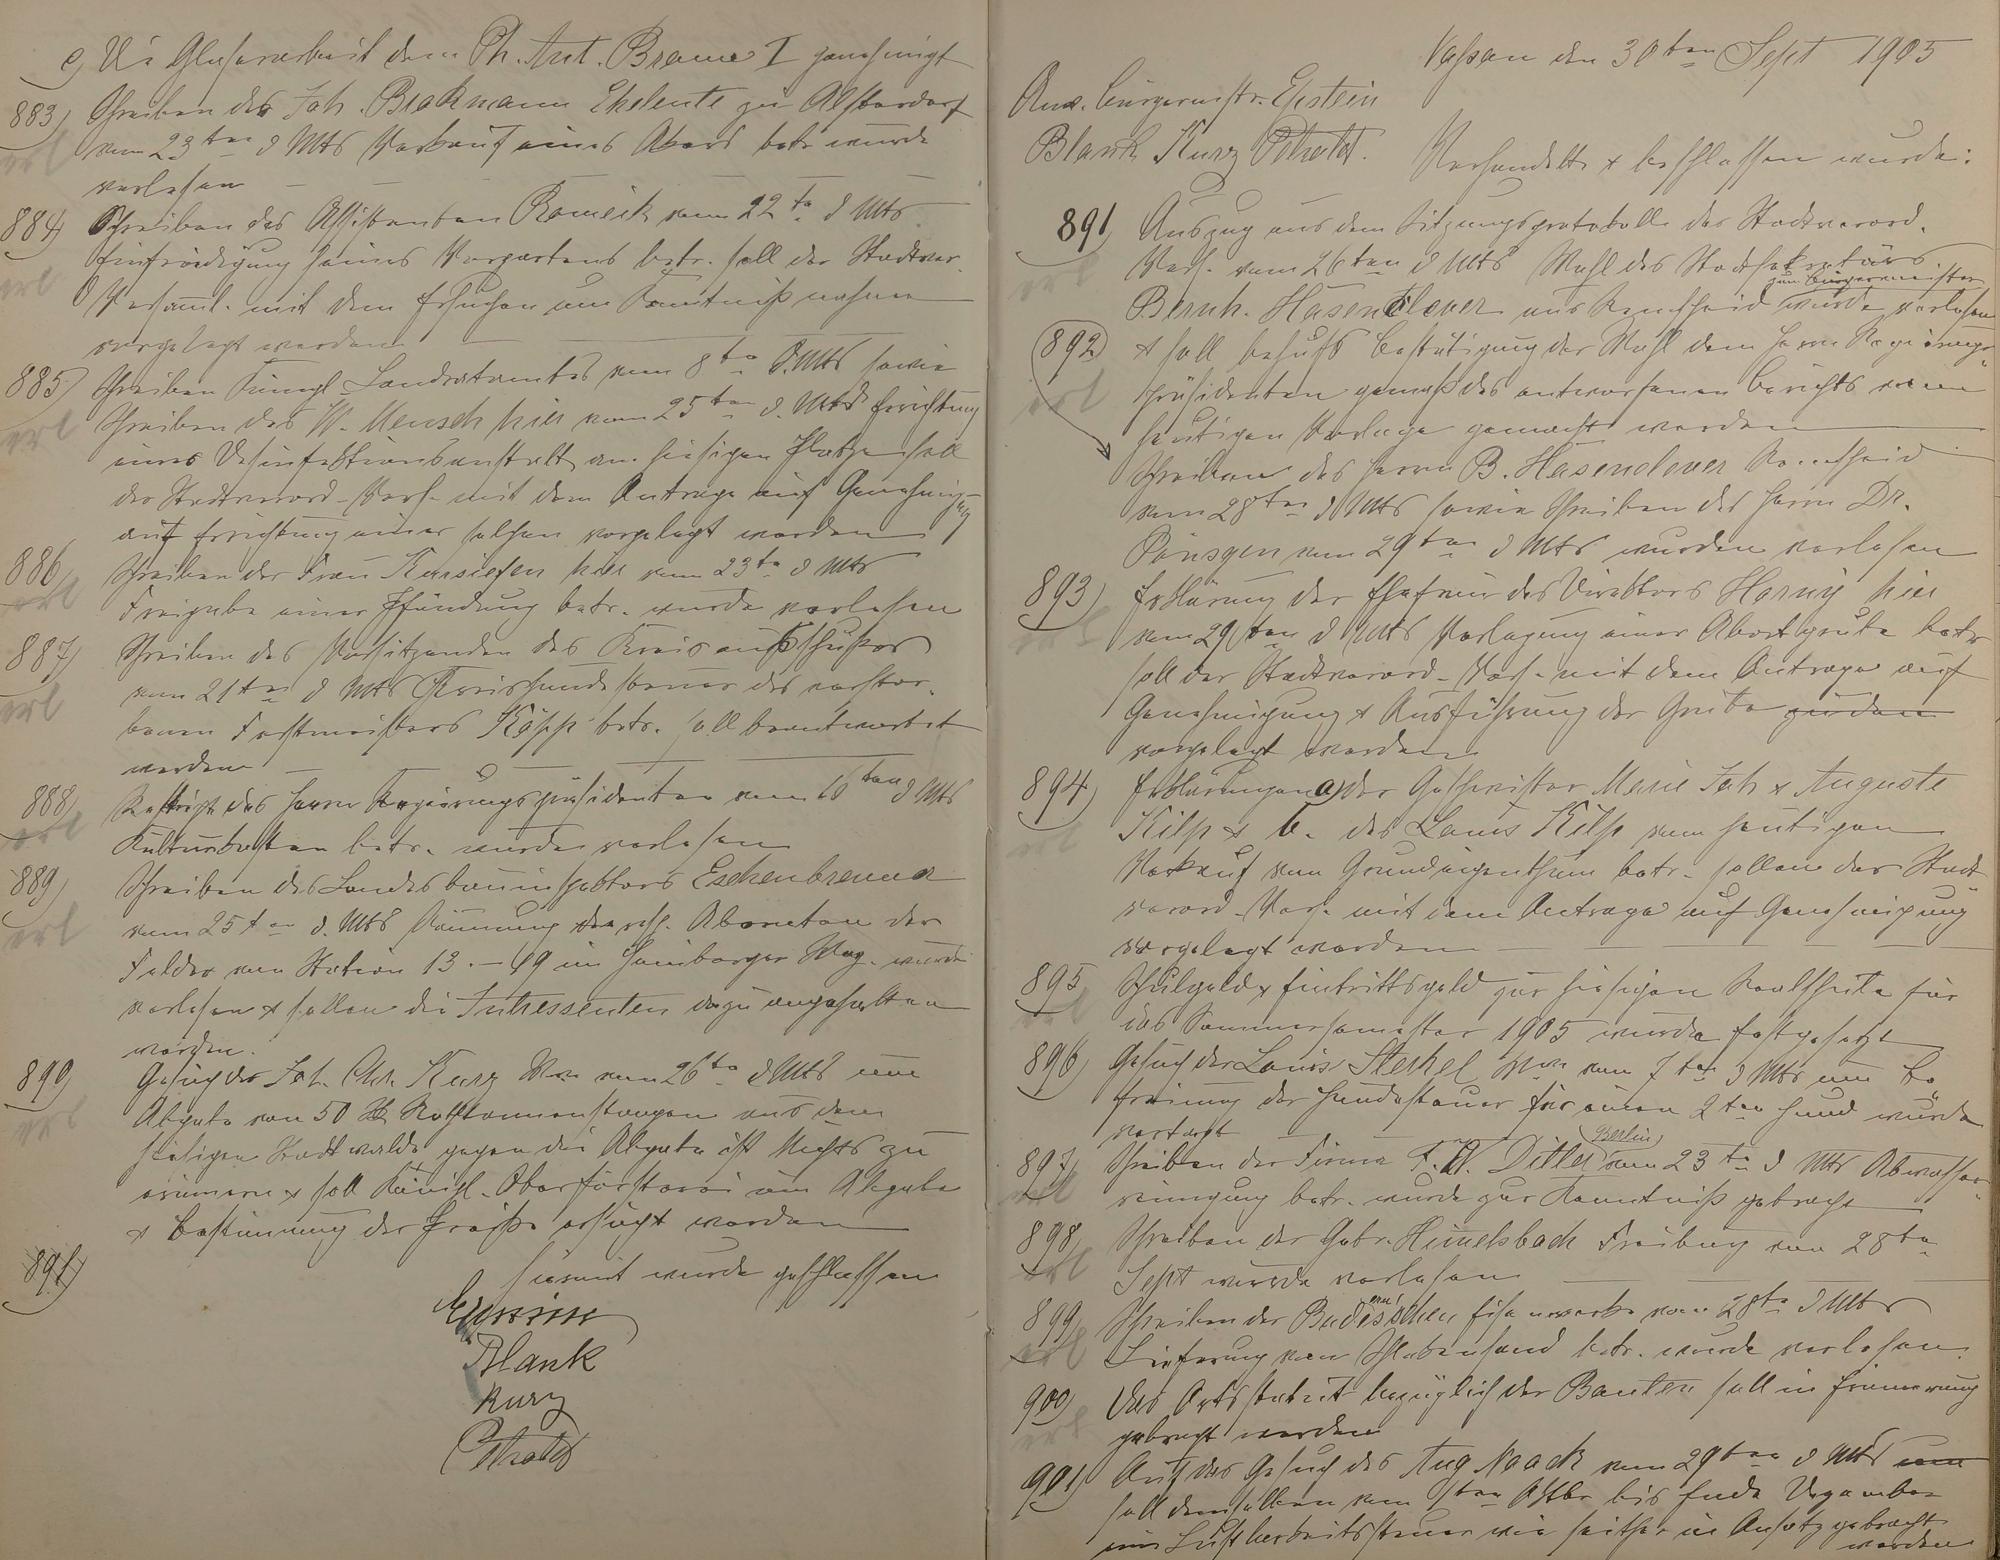 c, Die Glaserarbeit dem Ph. Ant. Brame I genehmigt
883) Schreiben des Joh. Brakmann Eheleute zu Alsterdorf
erl vom 23ten d Mts Verkauf eines Ackers betr. wurde
verlesen
884) Schreiben des Assistenten Romeick vom 22te d Mts
erl Einfriedigung seines Vorgartens betr. soll der Stadtver.
Versaml. mit dem Ersuchen um Kenntnißnahme
vorgelegt werden
885) Schreiben Königl. Landratamtes vom 8ten d. Mts sowie
erl Schreiben des W. Mensch hier vom 25ten d. Mts Errichtung
einer Desinfektionsanstalt am hiesigen Platze soll
der Stadtverord-Vers. mit dem Antrage auf Genehmig-
auf Errichtung einer solchen vorgelegt werden ung
886) Schreiben der Frau Kursiefen hier vom 23te d Mts
erl Freigabe einer Pfändung betr. wurde verlesen
887) Schreiben des Vorsitzenden des Kreisausschusses
erl vom 21ten d Mts Kreishundesteuer des verstor-
benen Forstmeisters Köpp betr. soll beantwortet
werden
888) Reskript des Herrn Regierungspräsidenten vom 16ten d Mts
erl Kulturkosten betr. wurde verlesen
889) Schreiben des Landesbauinspektors Eschenbrenner
erl vom 25ten d. Mts Räumung der
Felder von Station 13.-19 im Hainbarger Weg. wurde
verlesen & sollen die Interessenten dazu angehalten
werden.
890) Gesuch des Joh. Chr. Kurz Wwe vom 26te d Mts um
erl Abgabe von 50 Rothtannenstangen aus dem
hiesigen Stadtwalde gegen die Abgabe ist Nichts zu
erinnern & soll Königl. Oberförsterei um Abgabe
& Bestimmung der Preise ersucht werden
891)
hiermit wurde geschlossen
Epstein
Blank
Kurz
Petrald
den 30ten Sept 1905
Anw. Bürgermstr. Epstein
Blank Kurz Petrald. Verhandelt & beschlossen wurde:
891) Auszug aus dem Sitzungsprotokolle der Stadtverord.
erl Vers. vom 26ten d Mts Wahl des Stadtsekretärs
zum Bürgermeister
Bernh. Hasenclever aus Remscheid wurde verlesen
892) & soll behufs Bestätigung der Wahl dem Herrn Regierungs
erl präsidenten gemäß des entworfenen Berichts vom
heutigen Vorlage gemacht werden
Schreiben des Herrn B. Hasenclever Remscheid
vom 28ten d Mts sowie Schreiben des Herrn Dr.
Pönsgen vom 29ten d Mts wurden verlesen
893) Erklärung der Ehefrau des Direktors Horny hier
erl vom 29ten d Mts Verlegung einer Abortgrube betr
soll der Stadtverord-Vers. mit dem Antrage auf
Genehmigung & Ausführung der Grube zu den
vorgelegt werden
894) Erklärungen a) der Geschwister Marie Joh & Auguste
erl Kilp & b. des Louis Kilp vom heutigen
Verkauf von Grundeigenthum betr. sollen der Stadt
verord-Vers. mit dem Antrage auf Genehmigung
vorgelegt werden
895) Schulgeld & Eintrittsgeld zur hiesigen Realschule für
erl das Sommersemester 1905 wurde festgesetzt
896) Gesuch des Louis Sterkel Wwe vom 7ten d Mts um Be
freiung der Hundesteuer für einen 2ten Hund wurde
vertagt
897) Schreiben der Firma F. W. Ditler Berlin vom 23te d Mts Abwasser
erl reinigung betr. wurde zur Kenntniß gebracht
898) Schreiben der Gebr. Himmelsbach Freiburg vom 28ten
erl Sept wurde verlesen
899) Schreiben der Buderus'schen Eisenwerke vom 28te d Mts
erl Lieferung von Schlackensand betr. wurde verlesen.
900) Das Ortsstatut bezüglich der Bauten soll in Erinnerung
erl gebracht werden
901) Auf das Gesuch des Aug Noack vom 29ten d Mts um
soll demselben vom 1ten Oktbr bis Ende Dezember
eine Lustbarkeitssteuer wie seither in Ansatz gebracht
werden